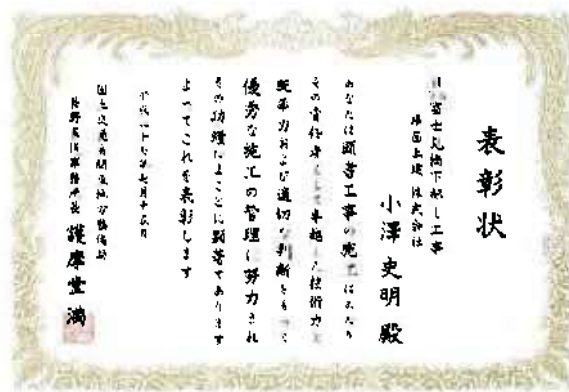 表彰状
富士見橋下部工工事
株式会社
小澤史明殿
あなたは頭書工事の施工にあたり
その責任者として卓越した技術力と
統率力および適切な判断をもって
優秀な施工の管理に努力され
その功績はまことに顕著であります
よってこれを表彰します
平成 年七月十五日
国土交通省関東地方整備局
長野国道事務所長 護摩堂満